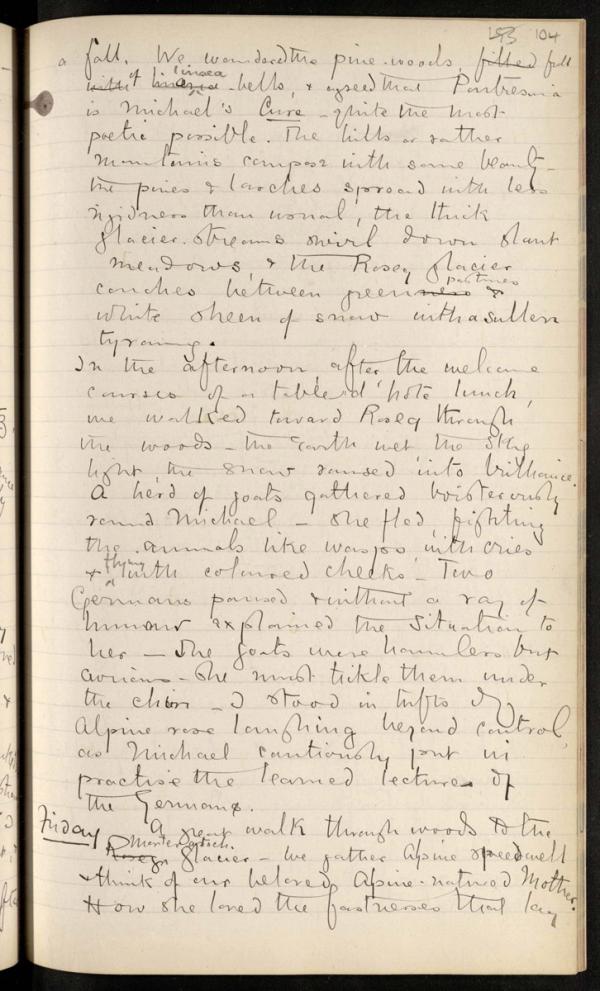 104
a fall. We wandered the pine-woods, filled full
with of linnea-bells, & agreed that Pontresina
is Michael's Cure - quite the most
poetic possible. The hills or rather
mountains compose with some beauty -
the pines & larches spread with less
rigidness than usual, the thick
glacier-streams swirl down slant
meadows, & the Roseg glacier
couches between green pastures &
white sheen of snow with a sullen
tyranny.
In the afternoon, after the welcome
courses of a table d'hôte lunch,
we walked toward Roseg through
the woods - the earth wet the sky
light, the snow roused into brilliance.
A herd of goats gathered boisterously
round Michael - she fled, fighting
the animals like wasps, with cries
& flying with coloured cheeks - Two
Germans paused & without a ray of
humour explained the situation to
her - The goats were harmless but
curious - She must tickle them under
the chin - I stood in tufts of
Alpine rose laughing beyond control,
as Michael cautiously put in
practise the learned lecture of
the Germans.
Friday A great walk through woods to the
Roseg Morteratsch glacier - We gather Alpine speedwell
& think of our beloved, Alpine-natured Mother.
How she loved the fastnesses that lay